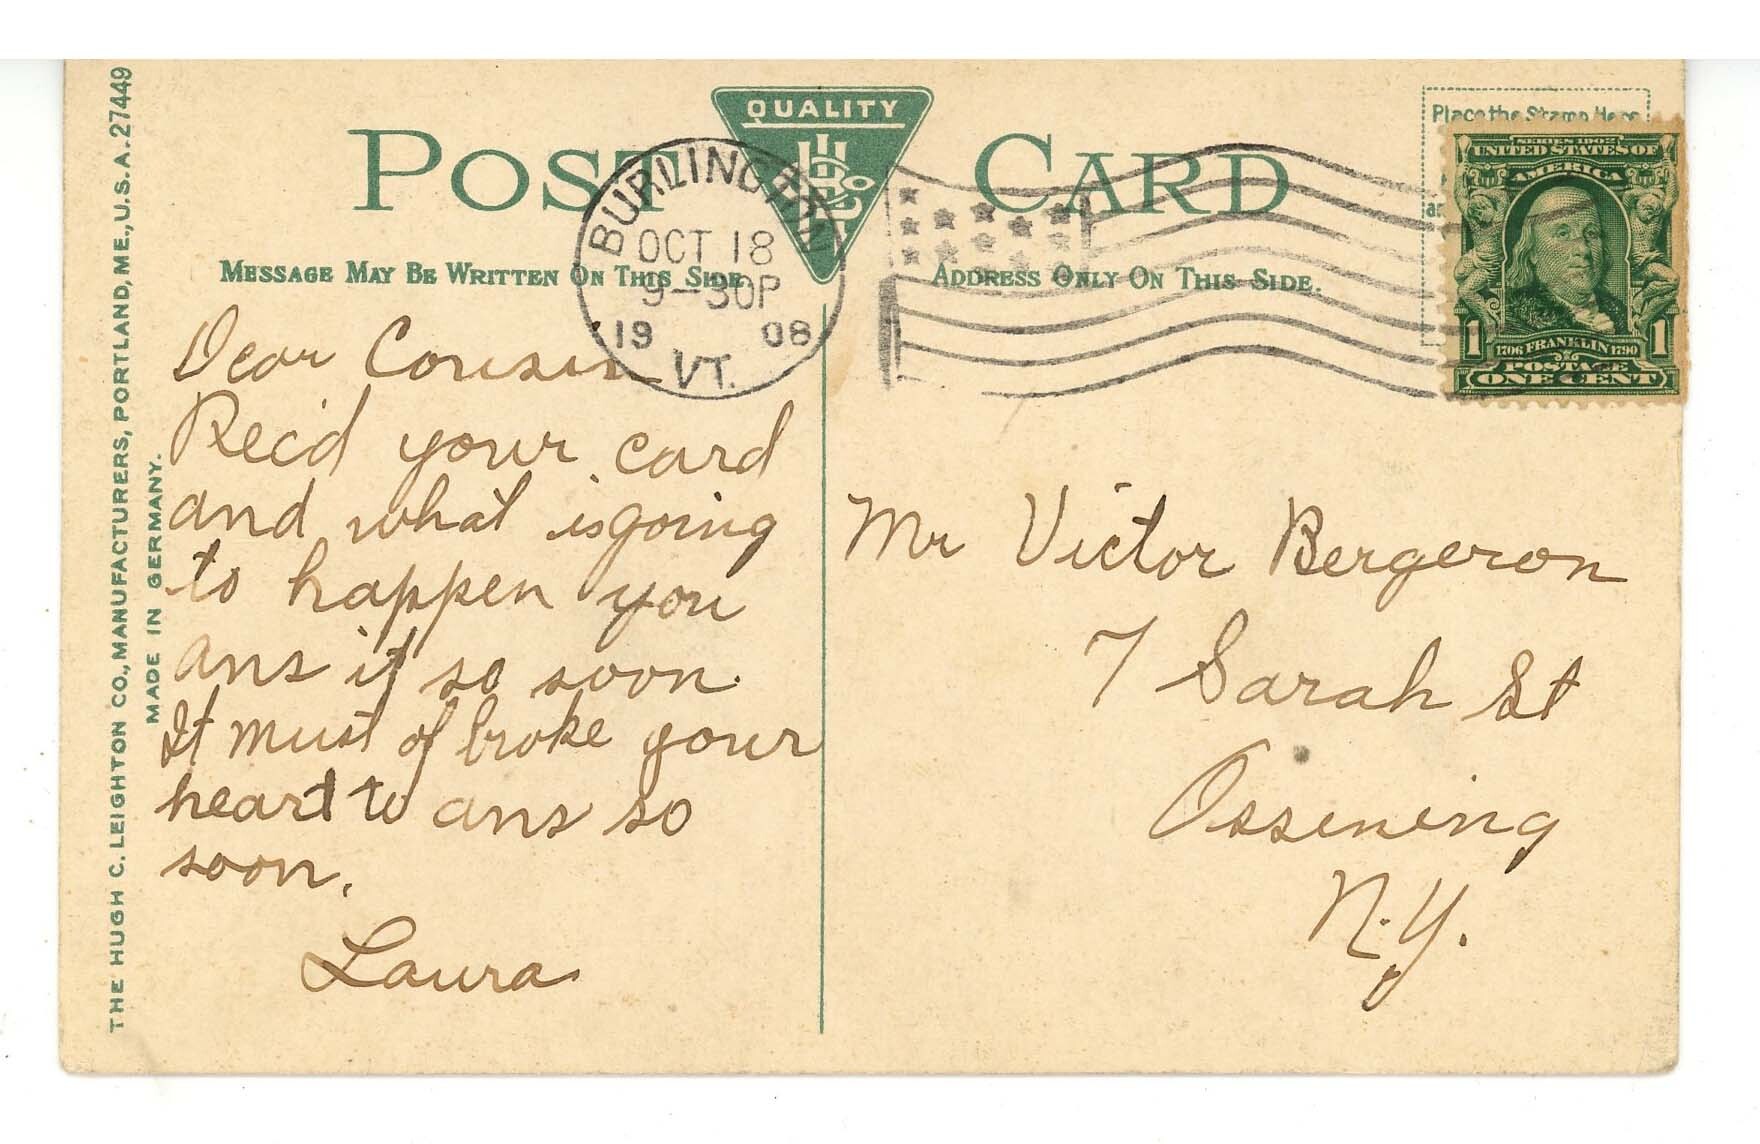 THE HUGH C. LEIGHTON CO., MANUFACTURERS, PORTLAND, ME., U.S.A. 27449
MADE IN GERMANY.
QUALITY
POST CARD
Place the Stamp Here
MESSAGE MAY BE WRITTEN ON THIS SIDE
ADDRESS ONLY ON THIS SIDE.
BURLINGTON
OCT 18
9-30P
1908
VT.
SERIES 1902
UNITED STATES OF
AMERICA
1 1
1706 FRANKLIN 1790
POSTAGE
ONE CENT
Dear Cousin
Rec'd your card
and what is going
to happen you
ans it so soon.
It must of broke your
heart to ans so
soon.
Laura
Mr Victor Bergeron
7 Sarah St
Ossining
N.Y.